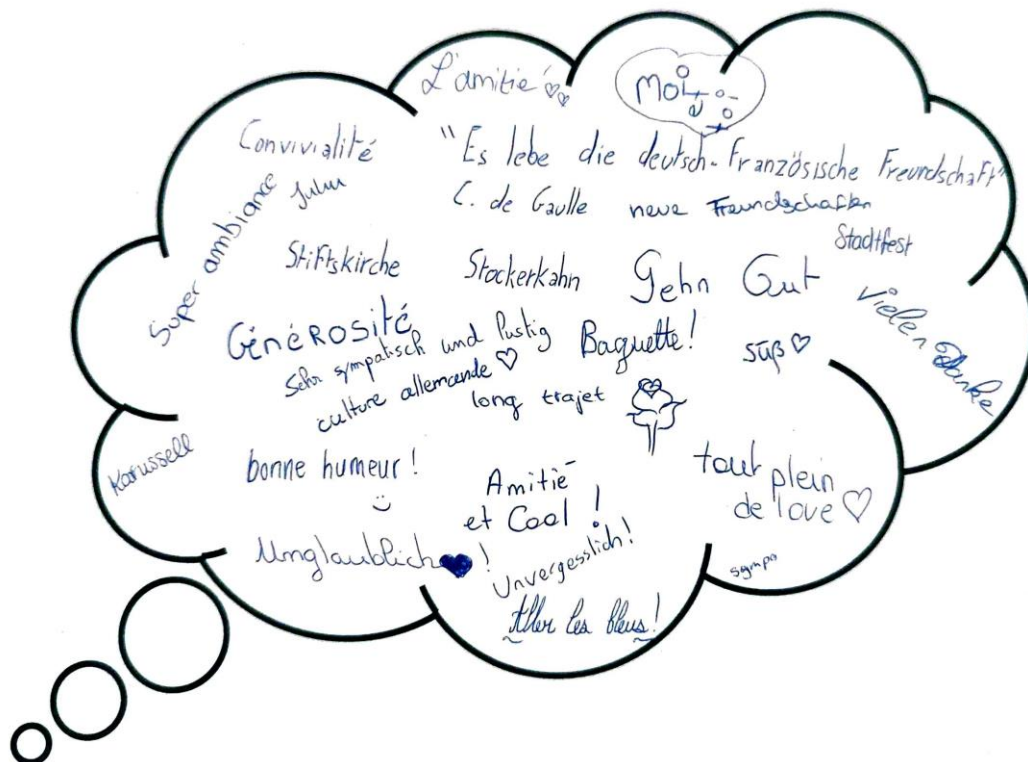 L'amitié
Convivialité
"Es lebe die deutsch-Französische Freundschaft"
C. de Gaulle
neue Freundschaften
Super ambiance
Stadtfest
Stiftskirche
Stockerkahn
Gehn Gut
Vielen Danke
GéNéROSité
Baguette!
süß
Sehr sympatisch und lustig
culture allemande
long trajet
Karussell
bonne humeur!
Amitié
et Cool!
tout plein
de love
Unglaublich!
Unvergesslich!
sympa
Aller les bleus!